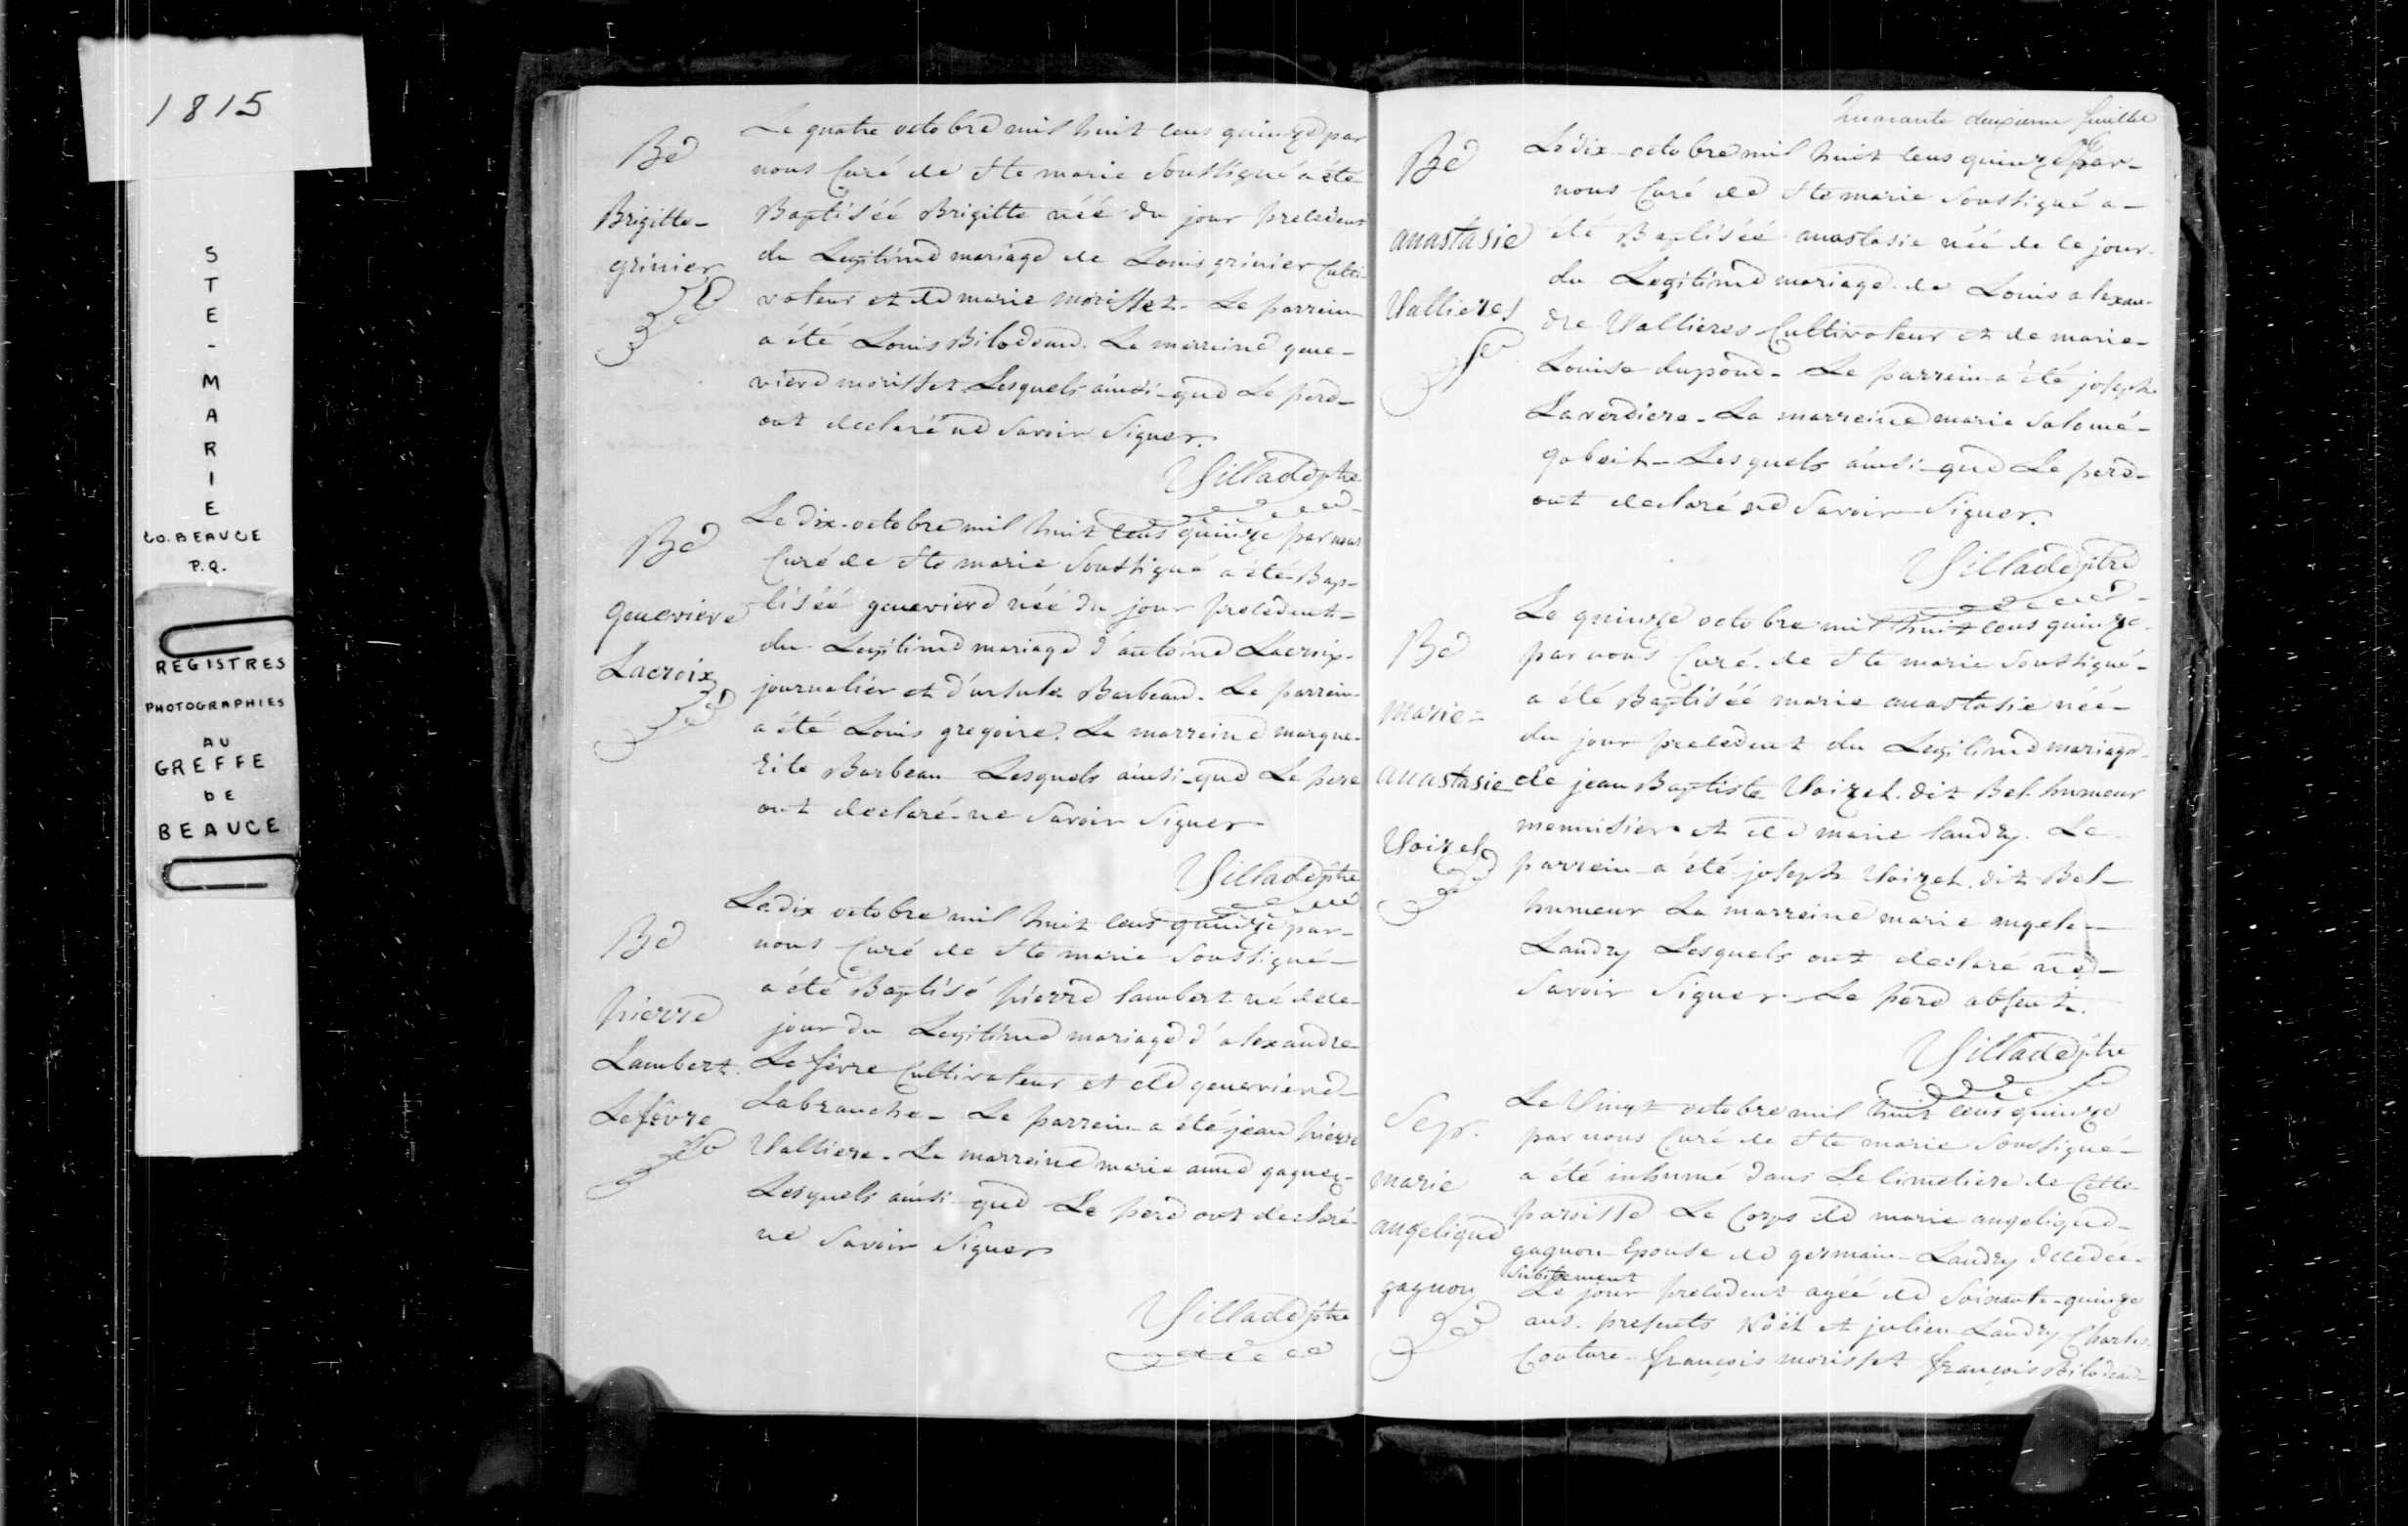 1815
S
T
E
-
M
A
R
I
E
CO. BEAUCE
P.Q.
REGISTRES
PHOTOGRAPHIES
AU
GREFFE
DE
BEAUCE
Be
Brigitte
grinier
Le quatre octobre mil huit cens quinze par
nous Curé de Ste marie Soussigné a été
Baptiséé Brigitte néé du jour precedent
du Legitime mariage de Louis grinier Culti-
vateur et de marie morisset. Le parrein
a été Louis Bilodeau. La marreine gene-
vieve morisset Lesquels ainsi que Le pere
ont declaré ne Savoir Signer.
Villade ptre
Be
Genevieve
Lacroix
Le Dix octobre mil huit cens quinze par nous
Curé de Ste marie Soussigné a été Bap-
tiséé genevieve néé du jour precedent
du Legitime mariage d'antoine Lacroix
journalier et d'ursule Barbeau. Le parrein
a été Louis gregoire. La marreine margue-
rite Barbeau Lesquels ainsi que Le pere
ont declaré ne Savoir Signer
Villade ptre
Be
pierre
Lambert
Lefêvre
Le dix octobre mil huit cens quinze par
nous Curé de Ste marie Soussigné
a été Baptisé pierre lambert né de ce
jour du Legitime mariage d'alexandre
Lefêvre Cultivateur et de genevieve
Labranche - Le parrein a été jean pierre
Valliere. La marreine marie anne gagnez
Lesquels ainsi que Le pere ont declaré
ne Savoir Signer
Villade ptre
Quarante deuxieme feuillet
Be
anastasie
Vallieres
Le dix octobre mil huit cens quinze par
nous Curé de Ste marie Soussigné a
été Baptiséé anastasie néé de ce jour
du Legitime mariage de Louis alexan-
dre Vallieres Cultivateur et de marie
Louise dupond - Le parrein a été joseph
Laverdiere - La marreine marie Salomé
gobeit - Lesquels ainsi que Le pere
ont declaré ne Savoir Signer.
Villade ptre
Be
marie
anastasie
Voizel
Le quinze octobre mil huit cens quinze
par nous Curé de Ste marie Soussigné
a été Baptiséé marie anastasie néé
du jour precedent du Legitime mariage
de jean Baptiste Voizel dit Bel humeur
menuisier et de marie landry. Le
parrein a été joseph Voizel dit Bel-
humeur La marreine marie angele
Landry Lesquels ont declaré ne
Savoir Signer. Le pere absent.
Villade ptre
Sep.
marie
angelique
gagnon
Le Vingt octobre mil huit cens quinze
par nous Curé de Ste marie Soussigné
a été inhumé dans Le Cimetiere de Cette
paroisse Le Corps de marie angelique
gagnon Epouse de germain Landry decedée
subitement
Le jour precedent agéé de Soixante-quinze
ans. presents Noël et julien Landry Charles
Couture - françois morisset françois Bilodeau